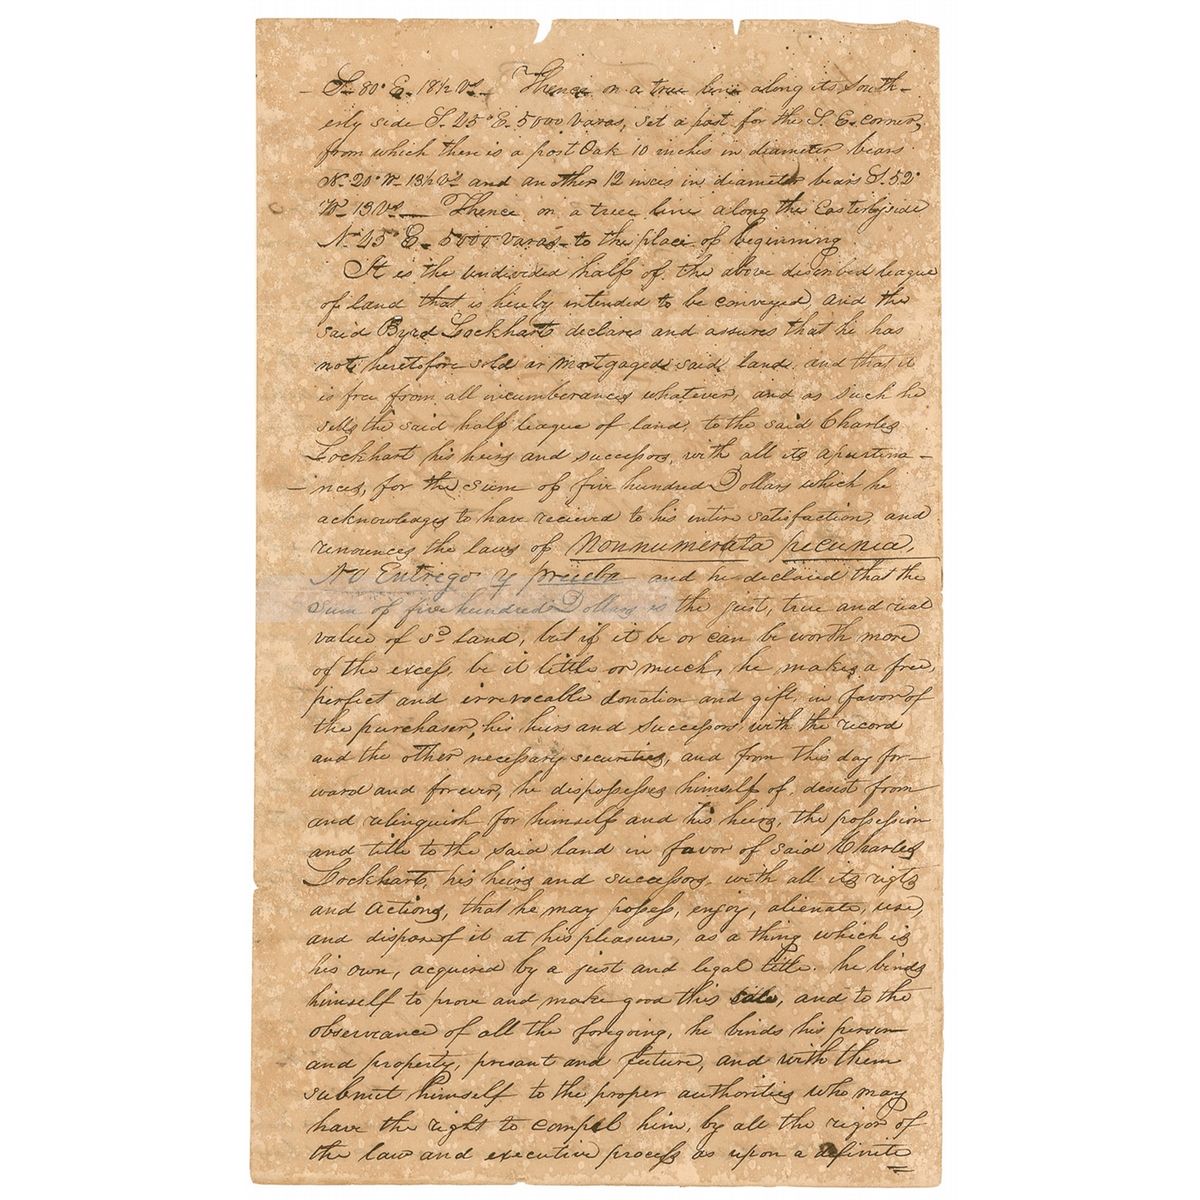 S. 80° E. 18½ Vs. Thence on a true line along its South-
erly side S. 45° E. 5000 varas, set a post for the S. E. corner,
from which there is a post Oak 10 inches in diameter bears
N. 20° W. 13½ Vs and another 12 inces in diameter bears S. 52°
W. 13 Vs — Thence on a true line along the Easterly side
N. 45° E. 5000 varas to the place of beginning
It is the undivided half of the above described league
of land that is hereby intended to be conveyed, and the
said Byrd Lockhart declares and assures that he has
not heretofore sold or mortgaged said land, and that it
is free from all incumberances whatever, and as such he
sells the said half league of land, to the said Charles
Lockhart his heirs and successors, with all its apurtina-
nces, for the sum of five hundred Dollars which he
acknowledges to have recieved to his intire satisfaction, and
renounces the laws of Nonnumerata pecunia,
No Entrega y prueba and he declared that the
sum of five hundred Dollars is the just, true and real
value of sd land, but if it be or can be worth more
of the excess, be it little or much, he makes a free,
perfect and irrevocable donation and gift, in favor of
the purchaser, his heirs and successors with the record
and the other necessary securities, and from this day for-
ward and forever, he dispossesses himself of, desist from
and relinquish for himself and his heirs, the possession
and title to the said land in favor of said Charles
Lockhart, his heirs and successors, with all its rigts
and Actions, that he may possess, enjoy, alienate, use,
and dispose of it at his pleasure, as a thing which is
his own, acquired by a just and legal title. he binds
himself to prove and make good this sale, and to the
observance of all the foregoing, he binds his person
and property, present and future, and with them
submit himself to the proper authorities who may
have the right to compel him, by all the rigor of
the law and executive process as upon a definite